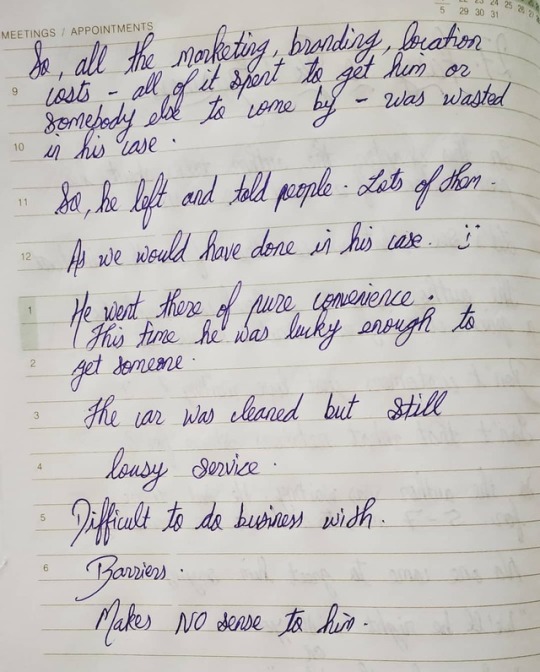 5 29 30 31
MEETINGS / APPOINTMENTS
So, all the marketing, branding, location
9 costs - all of it spent to get him or
somebody else to come by - was wasted
10 in his case.
11 So, he left and told people. Lots of them.
12 As we would have done in his case. :)
1 He went there of pure convenience.
(This time he was lucky enough to
2 get someone.
3 The car was cleaned but still
4 lousy service.
5 Difficult to do business with.
6 Barriers.
Makes NO sense to him.